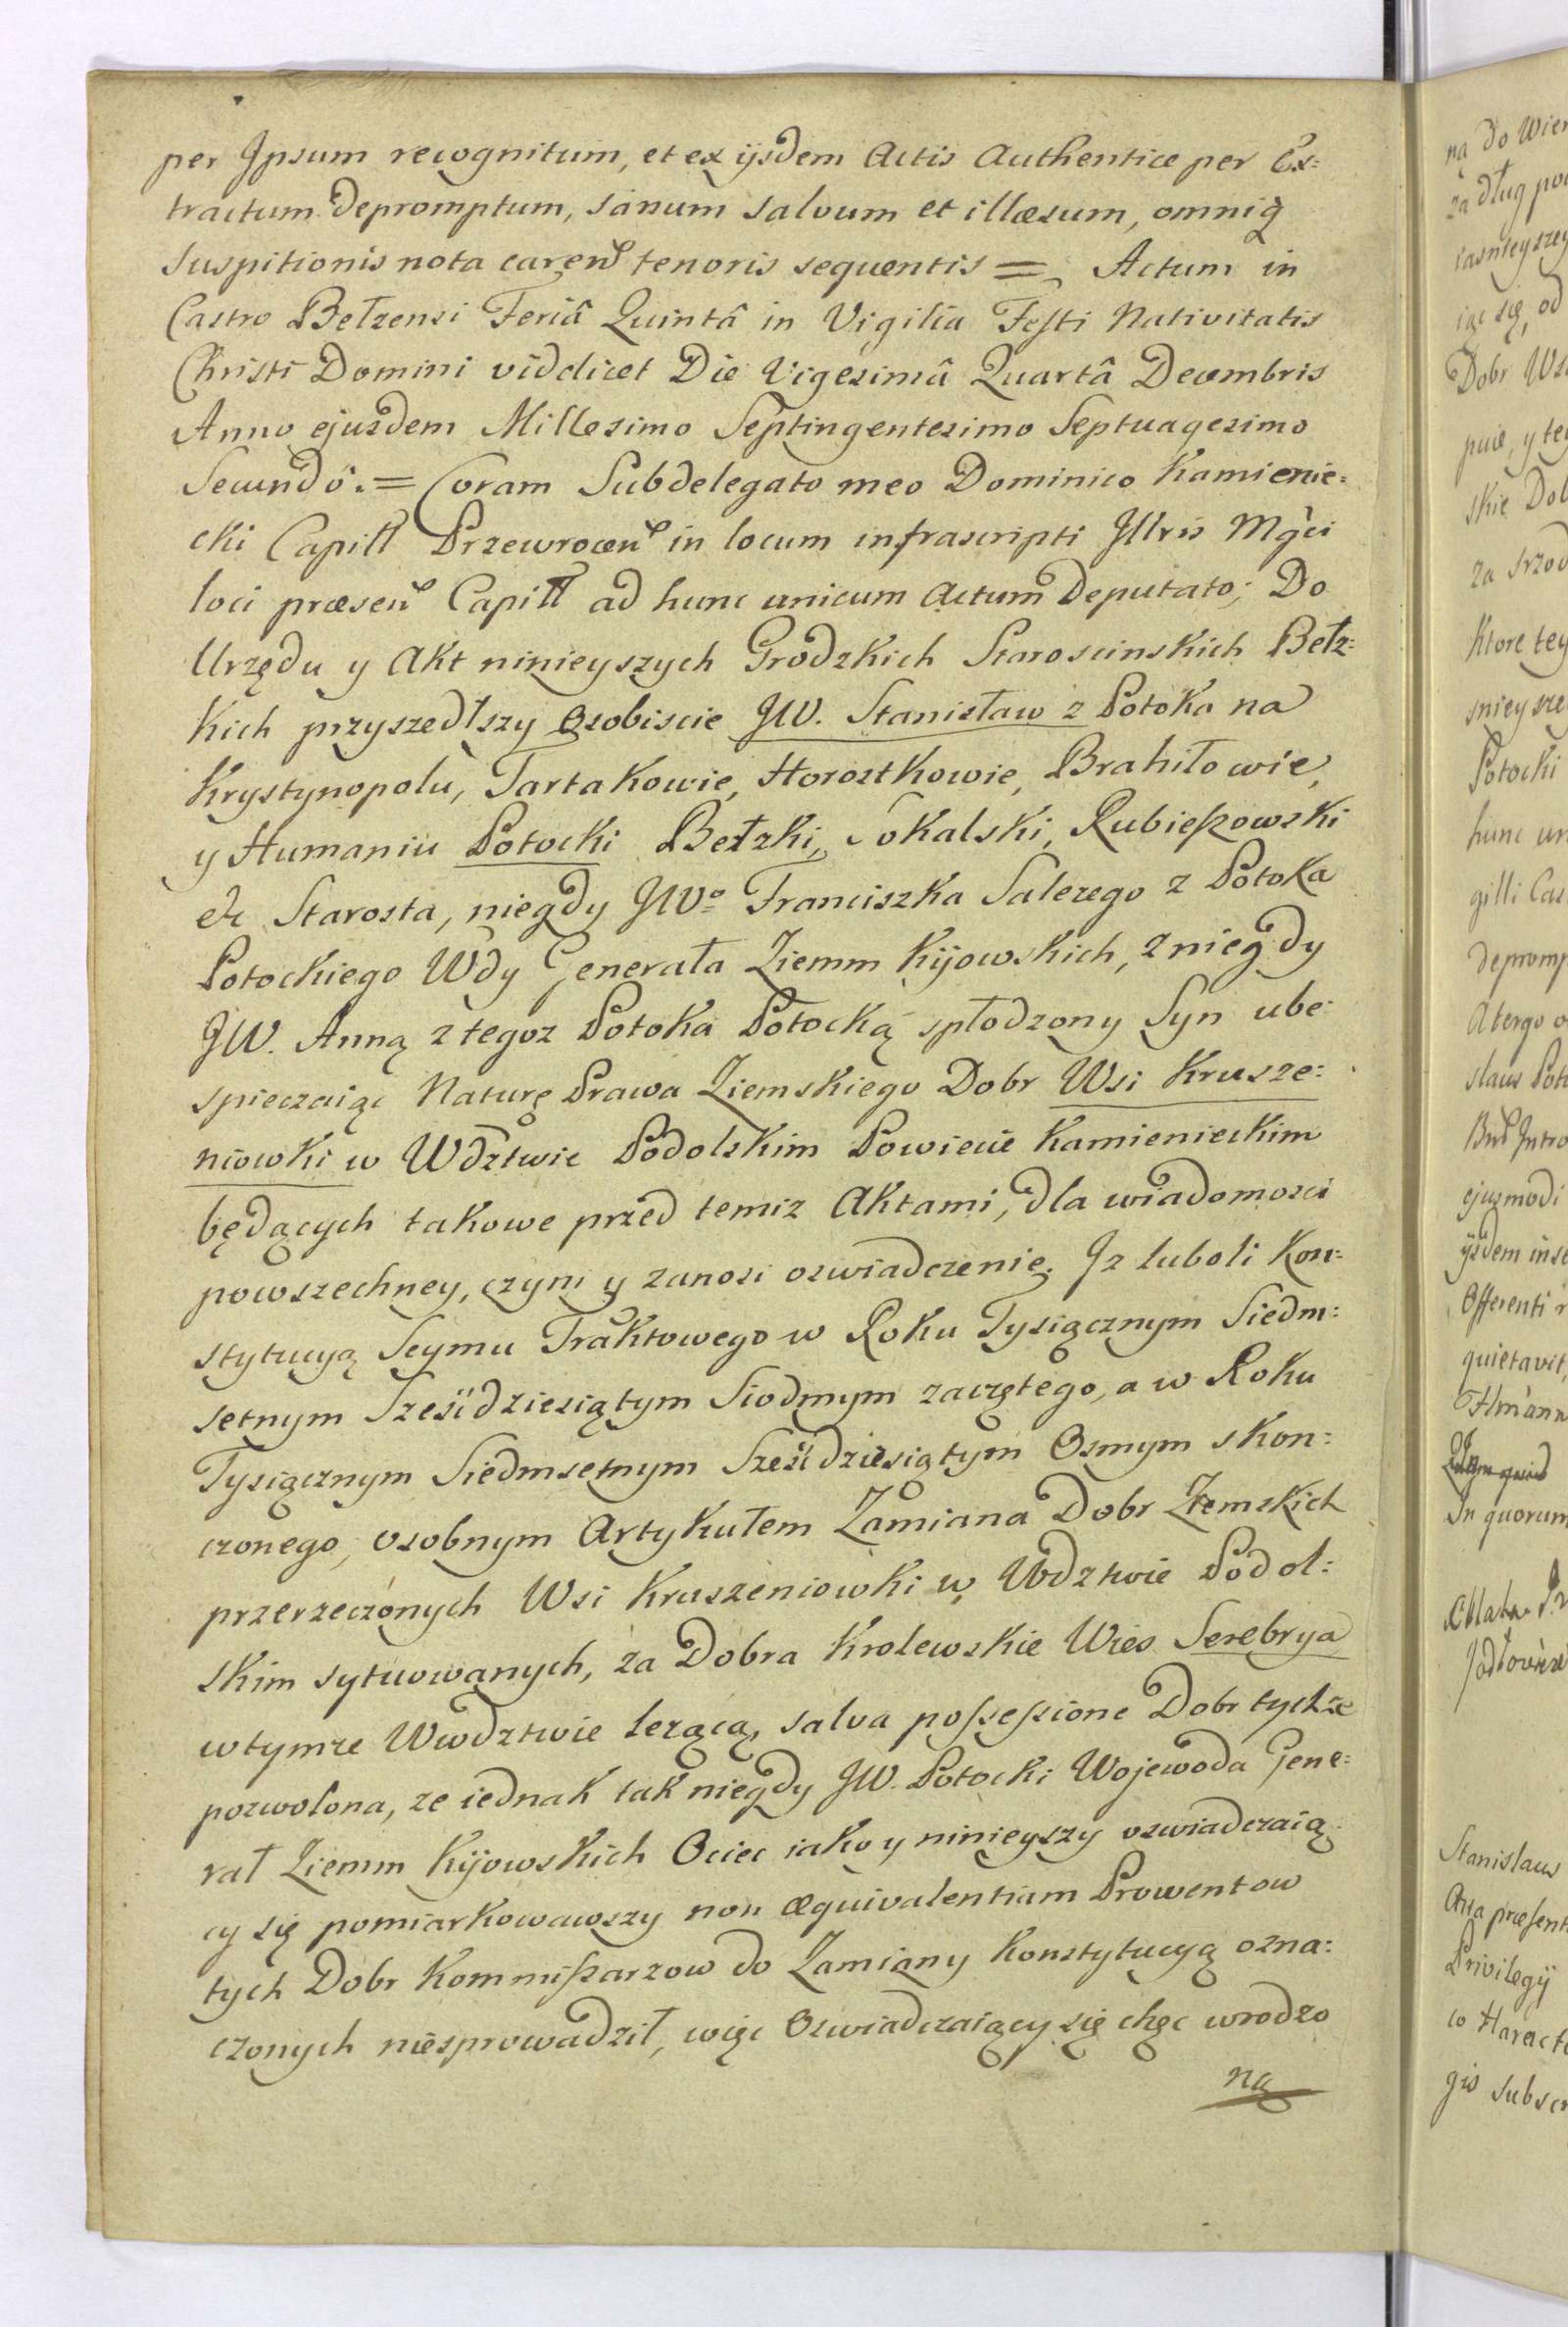 per Ipsum recognitum, et ex ijsdem Actis Authentice per Ex:
tractum depromptum, sanum salvum et illæsum, omniq̃
suspitionis nota careñ tenoris sequentis = Actum in
Castro Bełzensi Feriâ Quintâ in Vigilia Festi Nativitatis
Christi Domini videlicet Die Vigesimâ Quartâ Decembris
Anno ejusdem Millesimo Septingentesimo Septuagesimo
Secundô. = Coram Subdelegato meo Dominico Kamienie:
cki Capitł Przewroceñ in locum infrascripti Illris Mg̃ci
loci præseñ Capitł ad hunc unicum Actum Deputato; Do
Urzędu y Akt ninieyszych Grodzkich Staroscinskich Bełz:
kich przyszedłszy Osobiscie JW. Stanisław z Potoka na
Krystynopolu, Tartakowie, Horostkowie, Brahiłowie,
y Humaniu Potocki Bełzki, Sokalski, Rubieszowski
etc Starosta, niegdy JWo Franciszka Salezego z Potoka
Potockiego Wdy Generała Ziemm Kijowskich, z niegdy
JW. Anną z tegoz Potoka Potocką spłodzony Syn ube:
spieczaiąc Naturę Prawa Ziemskiego Dobr Wsi Krusze:
niowki w Wdztwie Podolskim Powiecie Kamienieckim
będących takowe przed temiz Aktami, dla wiadomosci
powszechney, czyni y zanosi oswiadczenie. Iz luboli Kon:
stytucyą Seymu Traktowego w Roku Tysiącznym Siedm:
setnym Sześćdziesiątym Siodmym zaczętego, a w Roku
Tysiącznym Siedmsetnym Sześćdziesiątym Osmym skon:
czonego, osobnym Artykułem Zamiana Dobr Ziemskich
przerzeczonych Wsi Kruszeniowki w Wdztwie Podol:
skim sytuowanych, za Dobra Krolewskie Wies Serebrya
w tymze Wwdztwie lezącą, salva possessione Dobr tychze
pozwolona, ze iednak tak niegdy JW. Potocki Wojewoda Gene:
rał Ziemm Kijowskich Ociec iako y ninieyszy oswiadczaią:
cy się pomiarkowawszy non æquivalentiam Prowentow
tych Dobr Kommissarzow do Zamiany Konstytucyą ozna:
czonych niesprowadził, więc Oswiadczaiący się chęc wrodzo
ną
ną do Wier
za dług
Dobr
skie Dob
Ktore tey
Potocki
hunc un
depromp
A tergo
ejusmodi
Offerenti
quietavit,
In quorum
Stanislaus
Privilegij